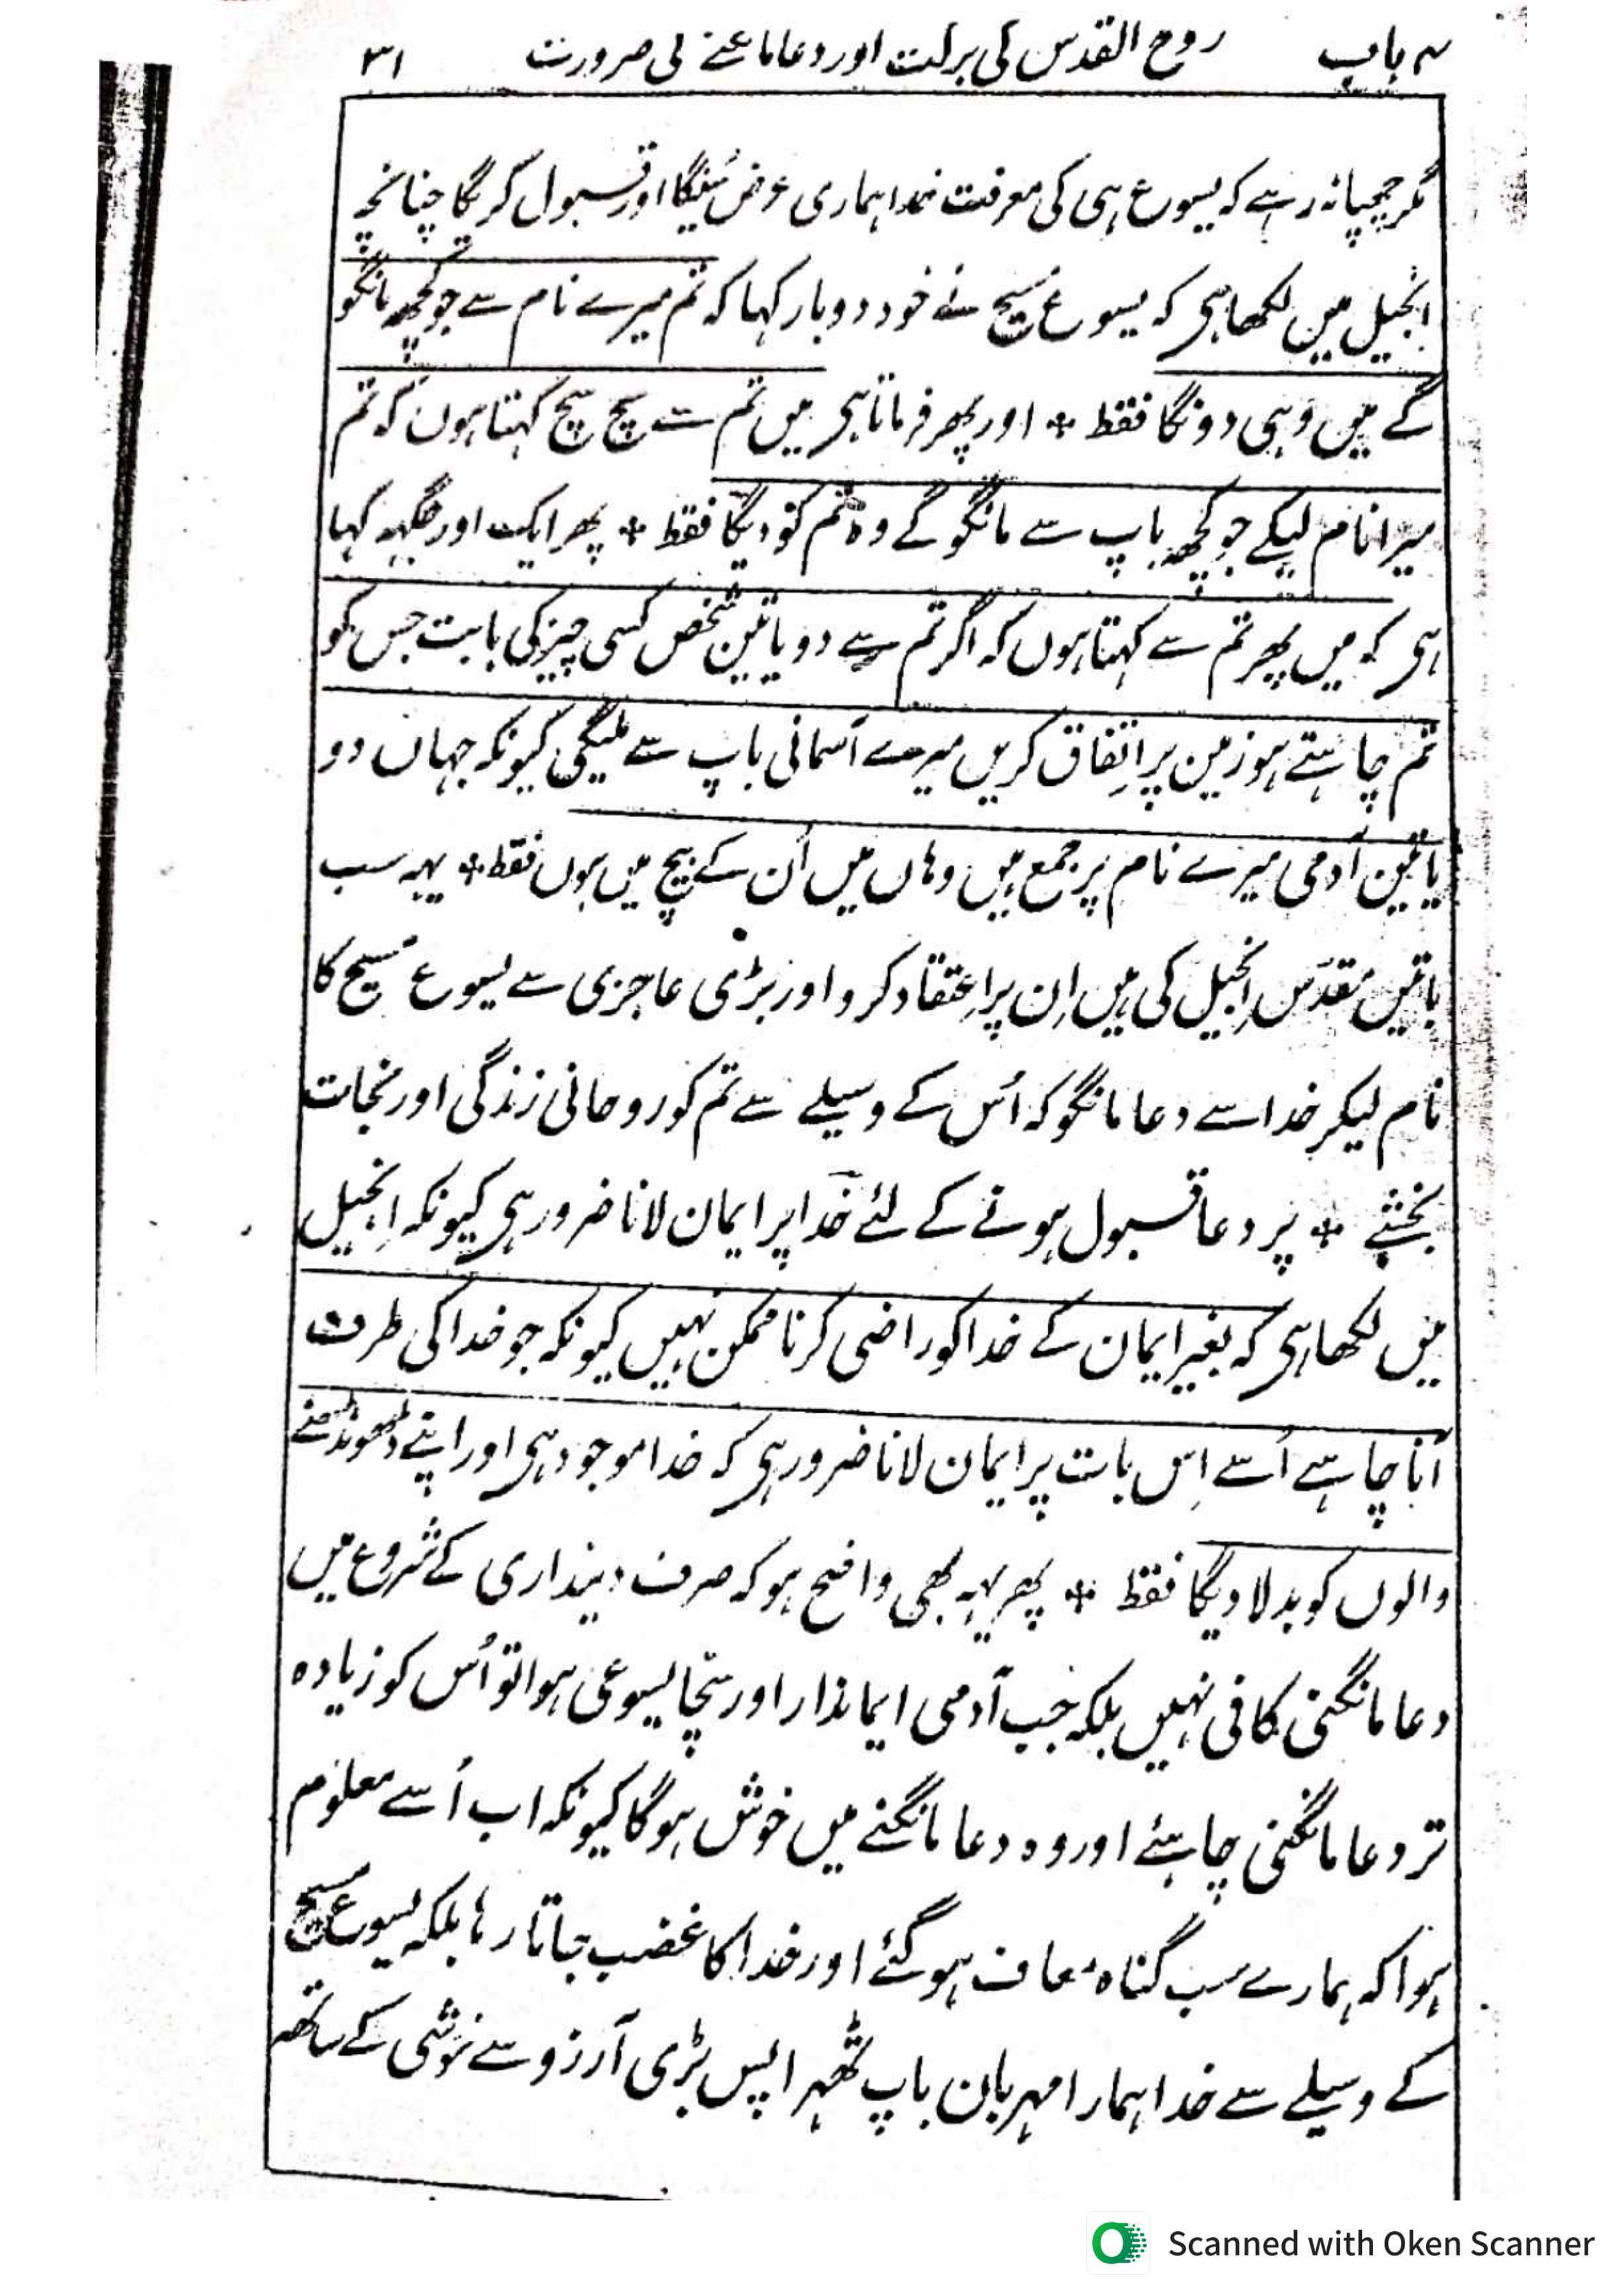 ۳ باب روح القدس کی برکت اور دعا مانگنے کی ضرورت ۳۱
مگر چھپا نہ رہے کہ یسوع ہی کی معرفت خدا ہماری عرض سُنیگا اور قبول کریگا چنانچہ
انجیل میں لکھا ہی کہ یسوع مسیح نے خود دوبار کہا کہ تم میرے نام سے جو کچھ مانگو
گے میں وُہی دونگا فقط * اور پھر فرماتا ہی میں تم سے سچ سچ کہتا ہوں کہ تم
میرا نام لیکے جو کچھ باپ سے مانگو گے وہ تم کو دیگا فقط * پھر ایک اور جگہہ کہا
ہی کہ میں پھر تم سے کہتا ہوں کہ اگر تم سے دو یا تین شخص کسی چیز کی بابت جس کو
تم چاہتے ہو زمین پر اِتفاق کریں میرے آسمانی باپ سے ملیگی کیونکہ جہاں دو
یا تین آدمی میرے نام پر جمع ہیں وہاں میں اُن کے بیچ میں ہوں فقط * یہہ سب
باتیں مقدّس اِنجیل کی ہیں اِن پر اِعتقاد کرو اور بڑی عاجزی سے یسوع مسیح کا
نام لیکر خدا سے دعا مانگو کہ اُس کے وسیلے سے تم کو روحانی زندگی اور نجات
بخشے * پر دعا قبول ہونے کے لئے خدا پر ایمان لانا ضرور ہی کیونکہ اِنجیل
میں لکھا ہی کہ بغیر ایمان کے خدا کو راضی کرنا ممکن نہیں کیونکہ جو خدا کی طرف
آنا چاہے اُسے اِس بات پر ایمان لانا ضرور ہی کہ خدا موجود ہی اور اپنے ڈھونڈھنے
والوں کو بدلا دیگا فقط * پھر یہہ بھی واضح ہو کہ صرف دینداری کے شروع میں
دعا مانگنی کافی نہیں بلکہ جب آدمی ایماندار اور سچّا یسوعی ہوا تو اُس کو زیادہ
تر دعا مانگنی چاہئے اور وہ دعا مانگنے میں خوش ہوگا کیونکہ اب اُسے معلوم
ہوا کہ ہمارے سب گناہ معاف ہو گئے اور خدا کا غضب جاتا رہا بلکہ یسوع مسیح
کے وسیلے سے خدا ہمارا مہربان باپ ٹھہرا پس بڑی آرزو سے خوشی کے ساتھ
Scanned with Oken Scanner